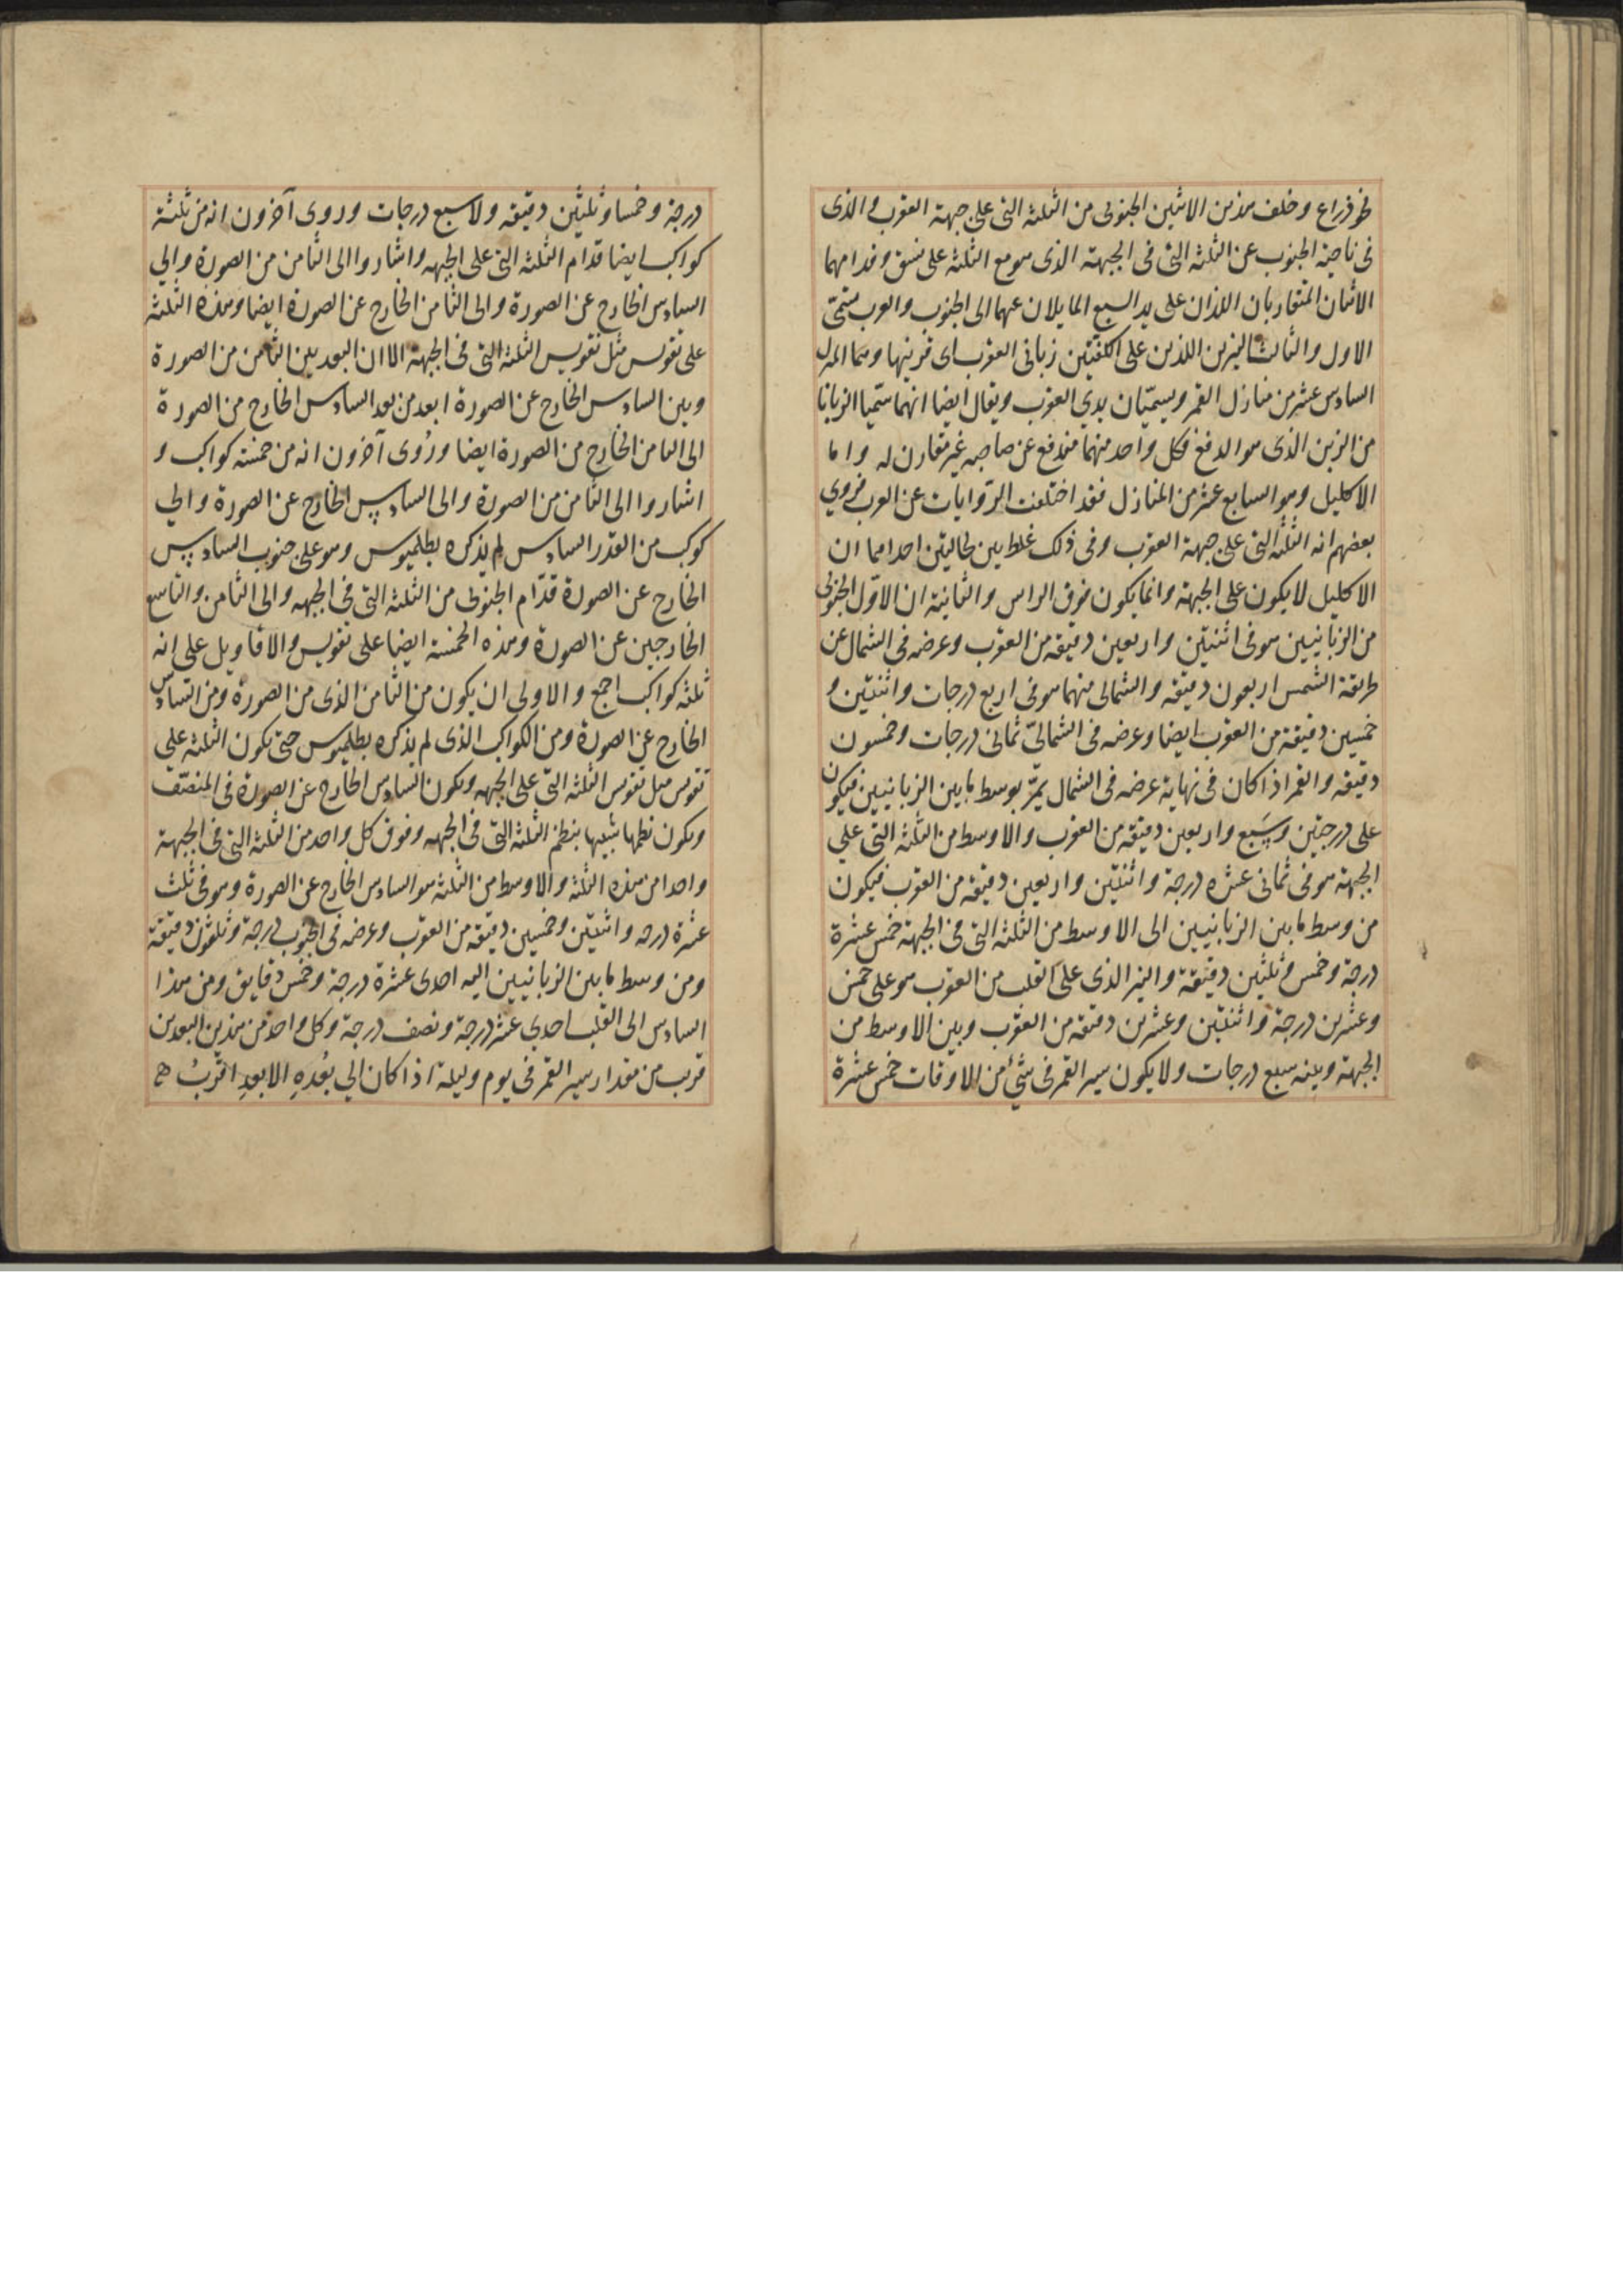 نحو ذراع وخلف هذين الاثنين الجنوبى من الثلثة التى على جبهة العقرب والذى
فى ناحية الجنوب عن الثلثة التى فى الجبهة الذى هو مع الثلثة على نسق وقدامهما
الاثنان المتقاربان اللذان على يد السبع المايلان عنهما الى الجنوب والعرب تسمّى
الاول والثالث النيرين اللذين على الكفّتين زبانى العقرب اى قرنيها وهما المنزل
السادس عشر من منازل القمر ويسمّيان يدى العقرب ويقال ايضا انهما سمّيا الزبانا
من الزبن الذى هو الدفع فكل واحد منهما مندفع عن صاحبه غير مقارن له واما
الاكليل وهو السابع عشر من المنازل فقد اختلفت الروايات عن العرب فروي
بعضهم انه الثلثة التى على جبهة العقرب وفى ذلك غلط بين لحالتين احداهما ان
الاكليل لا يكون على الجبهة وانما يكون فوق الراس والثانية ان الاوّل الجنوبى
من الزبانيين هو فى اثنتين واربعين دقيقه من العقرب وعرضه فى الشمال عن
طريقة الشمس اربعون دقيقه والشمالى منهما هو فى اربع درجات واثنتين و
خمسين دقيقة من العقرب ايضا وعرضه فى الشمالىّ ثمانى درجات وخمسون
دقيقه والقمر اذا كان فى نهاية عرضه فى الشمال يمرّ بوسط ما بين الزبانيين فيكون
على درجتين وسَبع واربعين دقيقه من العقرب والاوسط من الثلثة التى علي
الجبهة هو فى ثمانى عشره درجة واثنتين واربعين دقيقه من العقرب فيكون
من وسط ما بين الزبانيين الى الاوسط من الثلثه التى فى الجبهة خمس عشرة
درجة وخمس وثلثين دقيقة والنير الذى على القلب من العقرب هو على خمس
وعشرين درجة واثنتين وعشرين دقيقه من العقرب وبين الاوسط من
الجبهة وبينه سبع درجات ولا يكون سير القمر فى شئ من الاوقات خمس عشرة
درجة وخمسا وثلثين دقيقه ولا سبع درجات وروى آخرون انه من ثلثة
كواكب ايضا قدام الثلثه التى على الجبهه واشاروا الى الثامن من الصورة والي
السادس الخارج عن الصورة والى الثامن الخارج عن الصورة ايضا وهذه الثلثه
على تقوس مثل تقويس الثلثه التى فى الجبهة الا ان البعد بين الثامن من الصورة
وبين السادس الخارج عن الصورة ابعد من بعد السادس الخارج من الصورة
الى الثامن الخارج من الصورة ايضا ورُوى آخرون انه من خمسة كواكب و
اشاروا الى الثامن من الصورة والى السادس الخارج عن الصورة والي
كوكب من القدر السادس لم يذكره بطلميوس وهو على جنوب السادس
الخارج عن الصورة قدّام الجنوبى من الثلثة التى فى الجبهه والى الثامن والتاسع
الخارجين عن الصورة وهذه الخمسة ايضا على تقويس والاقاويل على انه
ثلثه كواكب اجمع والاولى ان يكون من الثامن الذى من الصورة ومن السادس
الخارج عن الصورة ومن الكواكب الذى لم يذكره بطلميوس حتى يكون الثلثه على
تقوس مثل تقوس الثلثه التى على الجبهه ويكون السادس الخارج عن الصورة فى المنتصف
ويكون نظمها شبيها بنظم الثلثه التى فى الجبهه وفوق كل واحد من الثلثة التى فى الجبهة
واحدا من هذه الثلثه والاوسط من الثلثه هو السادس الخارج عن الصورة وهو فى ثلث
عشرة درجه واثنتين وخمسين دقيقه من العقرب وعرضه فى الجنوب درجة وثلثون دقيقة
ومن وسط ما بين الزبانيين اليه احدى عشرة درجة وخمس دقايق ومن هذا
السادس الى القلب احدي عشر درجة ونصف درجة وكل واحد من هذين البعدين
قريب من مقدار سير القمر فى يوم وليلة اذا كان الي بُعدهِ الابعدِ اقربُ